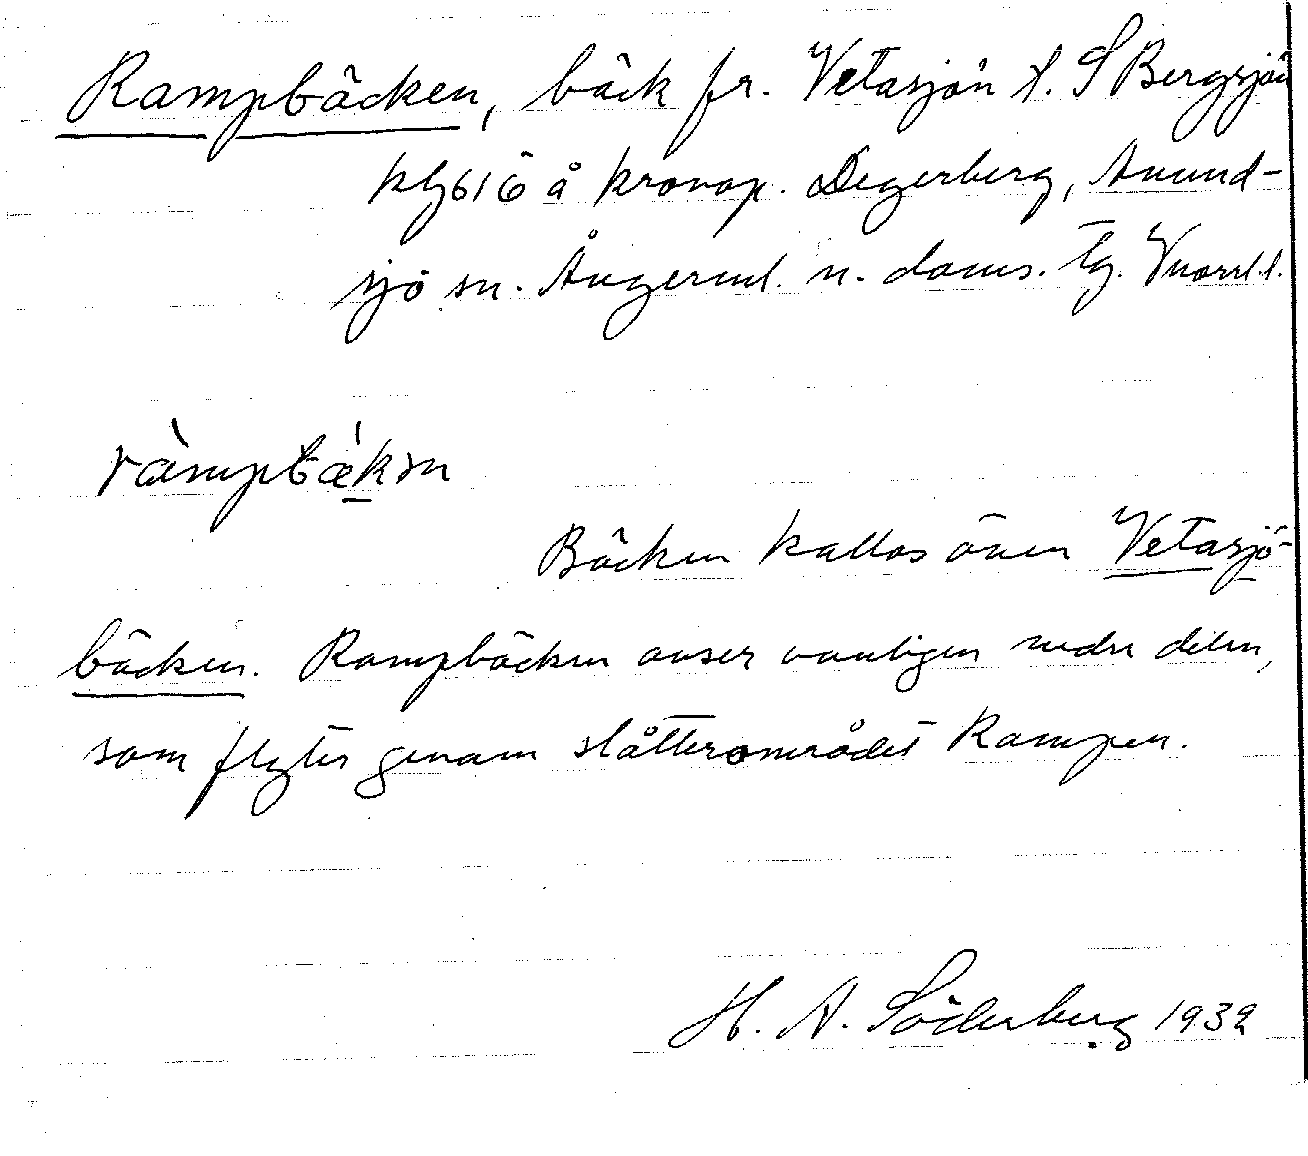 Rampbäcken, bäck fr. Vetasjön t. S Bergsjön
å kronop. Degerberg, Anund-
sjö sn. Ångerml. n. doms. tg. Vnorrl. l.
ràmpbǽksn
Bäcken kallas även Vetasjö-
bäcken. Rampbäcken avser vanligen nedre delen,
som flyter genom slåtterområdet Rampen.
H. A. Söderberg 1932